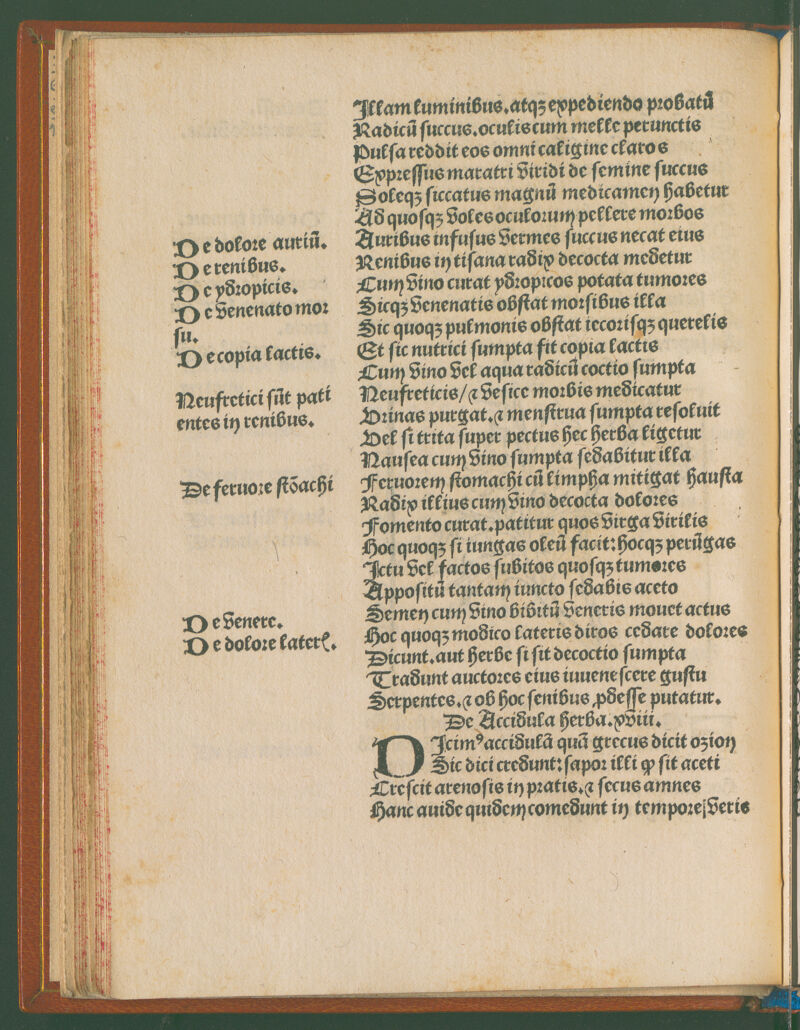 Illam luminibus.atqꝫ expediendo probatū
Radicū succus.oculis cum melle perunctis
Pulsa reddit eos omni caligine claros
Expressus maratri viridi de semine succus
Soleqꝫ siccatus magnū medicamen habetur
Ad quosqꝫ voles oculorum pellere morbos
De dolore auriū.
Auribus infusus vermes succus necat eius
De renibus.
Renibus in tisana radix decocta medetur
De ydropicis.
Cum vino curat ydropicos potata tumores
De venenato mor
Sicqꝫ venenatis obstat morsibus illa
su.
Sic quoqꝫ pulmonis obstat iecorisqꝫ querelis
De copia lactis.
Et sic nutrici sumpta fit copia lactis
Cum vino vel aqua radicū coctio sumpta
Neufretici sūt pati
Neufreticis/⁊ vesice morbis medicatur
entes in renibus.
Vrinas purgat.⁊ menstrua sumpta resoluit
Vel si trita super pectus hec herba ligetur
Nausea cum vino sumpta sedabitur illa
De feruore stōachi
Feruorem stomachi cū limpha mitigat hausta
Radix illius cum vino decocta dolores
Fomento curat.patitur quos virga virilis
Hoc quoqꝫ si iungas oleū facit:hocqꝫ perūgas
Ictu vel factos subitos quosqꝫ tumores
Appositū tantam iuncto sedabis aceto
De venere.
Semen cum vino bibitū veneris mouet actus
De dolore laterꝭ.
Hoc quoqꝫ modico lateris diros cedare dolores
Dicunt.aut herbe si sit decoctio sumpta
Tradunt auctores eius iuuenescere gustu
Serpentes.⁊ ob hoc senibus ꝓdesse putatur.
De Accidula herba.xviii.
DIcimꝰ accidulā quā grecus dicit ozion
Sic dici credunt:sapor illi ꝙ sit aceti
Crescit arenosis in pratis.⁊ secus amnes
Hanc auide quidem comedunt in tempore veris